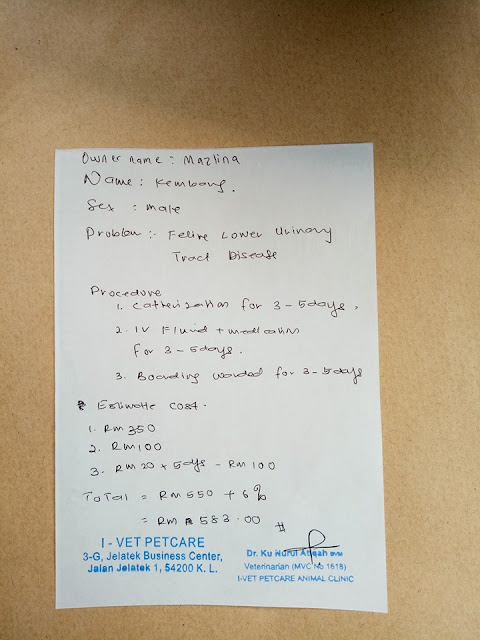 Owner name : Mazlina
Name : Kembang.
Sex : male
Problem :- Feline Lower Urinary
Tract Disease
Procedure
1. Catherization for 3-5days.
2. IV Fluid + medication
for 3-5days.
3. Boarding warded for 3-5days
Estimate cost.
1. RM 350
2. RM100
3. RM20 x 5days - RM100
Total = RM550 + 6%
= RM 583.00
I - VET PETCARE
3-G, Jelatek Business Center,
Jalan Jelatek 1, 54200 K. L.
Dr. Ku Nurul Atiqah BVM
Veterinarian (MVC No 1618)
I-VET PETCARE ANIMAL CLINIC